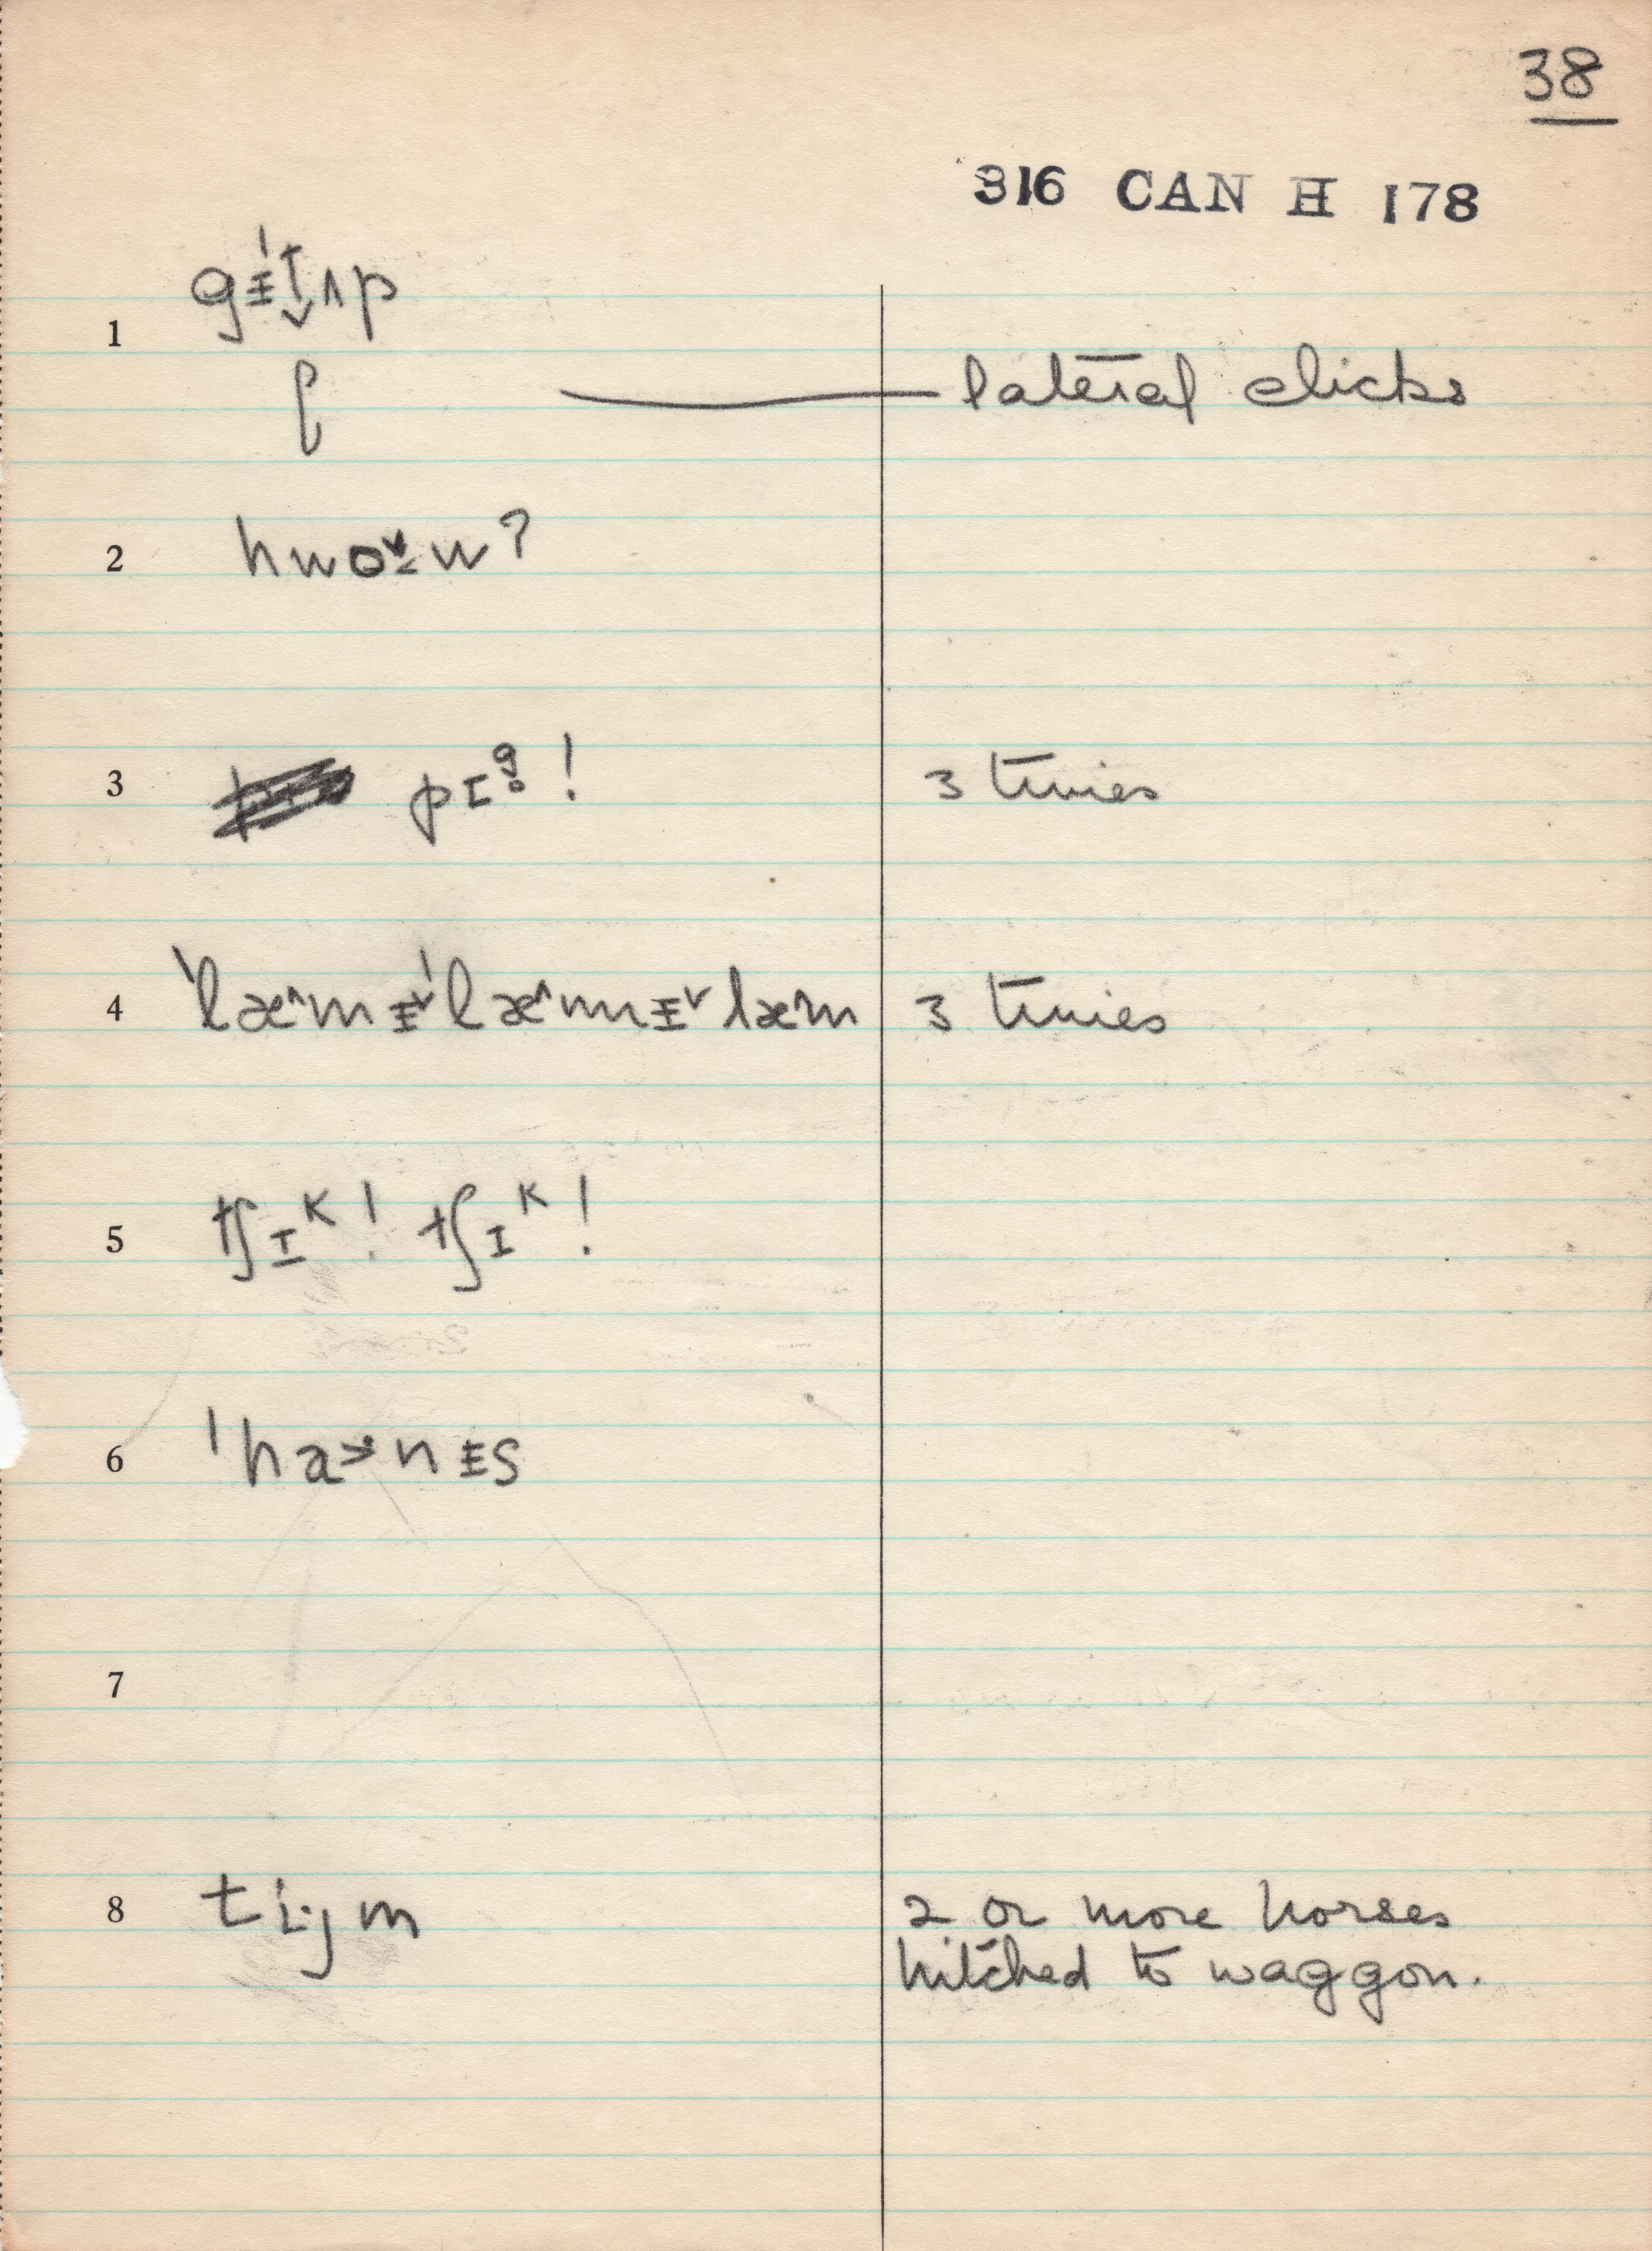 38
316 CAN H 178
1 gᵻ'ṱʌp
ʗ lateral clicks
2 hwo˅w?
3 pɪᶢ̥! 3 times
4 'læ^mᵻ˅'læ^mᵻ˅læ^m 3 times
5 tʃɪᴷ! tʃɪᴷ!
6 'ha>·nᵻs
7
8 ti·ȷm 2 or more horses
hitched to waggon.